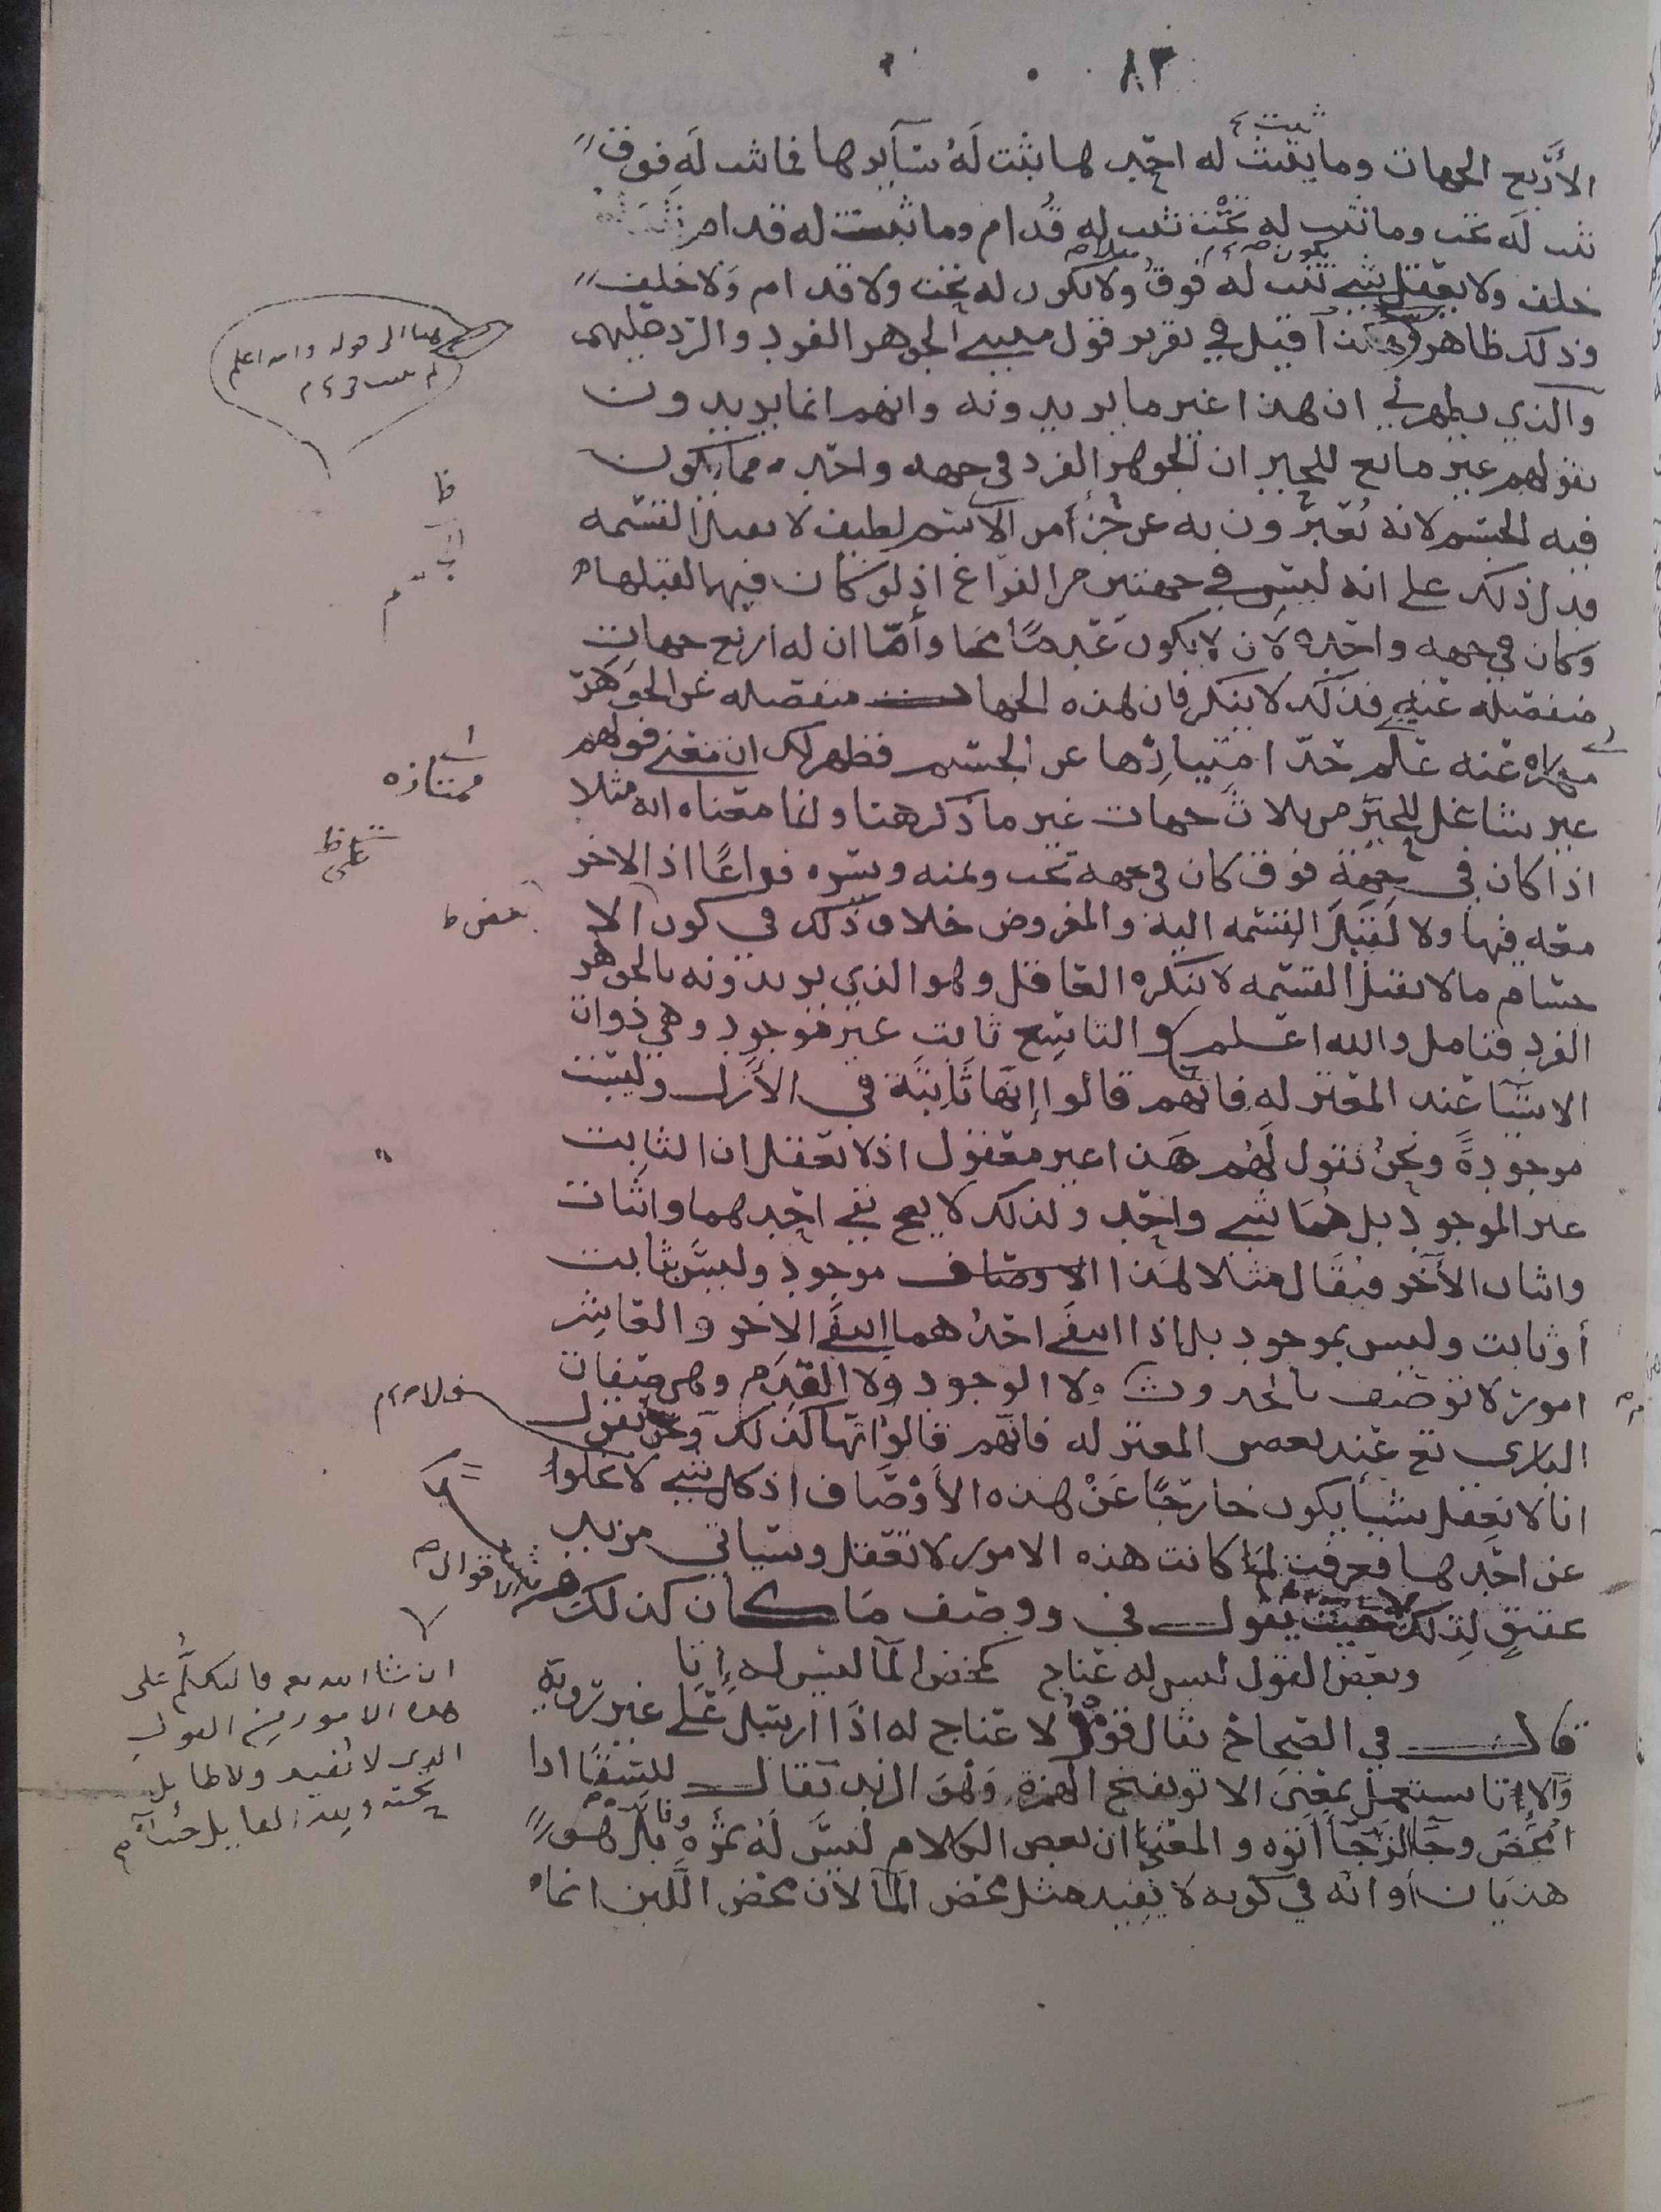 ٨٣
ثبت
الأربع الجهات وما يثبت له احدها يثبت له سايرها فما ثبت له فوق
ثبت له تحت وما ثبت له تحت ثبت له قدام وما ثبت له قدام ثبت له
خلف ولا يعقل شي ثبت له فوق ولا يكون له تحت ولا قدام ولا خلف
وذلك ظاهر هكذا قيل في تقرير قول مثبتي الجوهر الفرد والرد عليهم
والذي يظهر لي ان هذا غير ما يريدونه وانهم انما يريدون
بقولهم غير مانع للحيز ان الجوهر الفرد في جهه واحده مما يكون
فيه الجسم لانه يعبرون به عن جزأ من الجسم لطيف لا يقبل القسمه
فدل ذلك على انه ليس في جهتين من الفراغ اذ لو كان فيها لقبلها
وكان في جهه واحده لان لا يكون عدما محضا وأما ان له اربع جهات
منفصله عنه فذلك لا ينكر فان هذه الجهات منفصله عن الجوهر
عنه على حد امتيازها عن الجسم فظهر لك ان معنى قولهم
غير شاغل للحيز من ثلاث جهات غير ما ذكر هنا وانما معناه انه مثلا
اذا كان في جهة فوق كان في جهه تحت ويمنه ويسره فراغا اذ لا جزء
معه فيها ولا لقبل القسمه اليه والمفروض خلاف ذلك في كون الا
جسام ما لا يقبل القسمه لا ينكره العاقل وهو الذي يريدونه بالجوهر
الفرد فتامل والله اعلم والتاسع ثابت غير موجود وهي ذوات
الاشيا عند المعتزله فانهم قالوا إنها ثابتة في الأزل وليست
موجودة ونحن نقول لهم هذا غير معقول اذ لا يعقل ان الثابت
غير الموجود بل هما شي واحد ولذلك لا يصح نفي احدهما واثبات
واثبات الأخر فيقال مثلا هذا الاوصاف موجود وليس ثابت
أو ثابت وليس بموجود بل اذا انتفى احدهما انتفى الاخر والعاشر
امور لا توصف بالحدوث ولا الوجود ولا القدم وهي صفات
الباري تع عند بعض المعتزله فانهم قالوا انها كذلك ونحن نقول
انا لا نعقل شيأ يكون خارجا عن هذه الأوصاف اذ كل شي لا يخلوا
عن احدها فعرفت لما كانت هذه الامور لا تعقل وسياتي مزيد
لذلك حيث يقول في ووصف ما كان كذلك
وبعض القول ليس له عناج كمخض الما ليس له إتا
قال في الصحاح يقال قول لا عناج له اذا ارسل على غير روية
والاتا يستعمل بمعنى الاتو بفتح الهمزة وهو الزبد يقال للسقا اذا
امخض وجا الزبد جا اتوه والمعنى ان بعض الكلام ليس له ثمره وفايده بل هو
هذيان أو انه في كونه لا يفيد مثل مخض الما لان مخض اللبن انما
هنا الى قوله والله اعلم
ظ
ممتازه
على ظ
بعض ظ
ولا
الاقوال
ان شا الله تع فالتكلم على
هذه الامور من القول
الذي لا يفيد ولا طايل
تحته